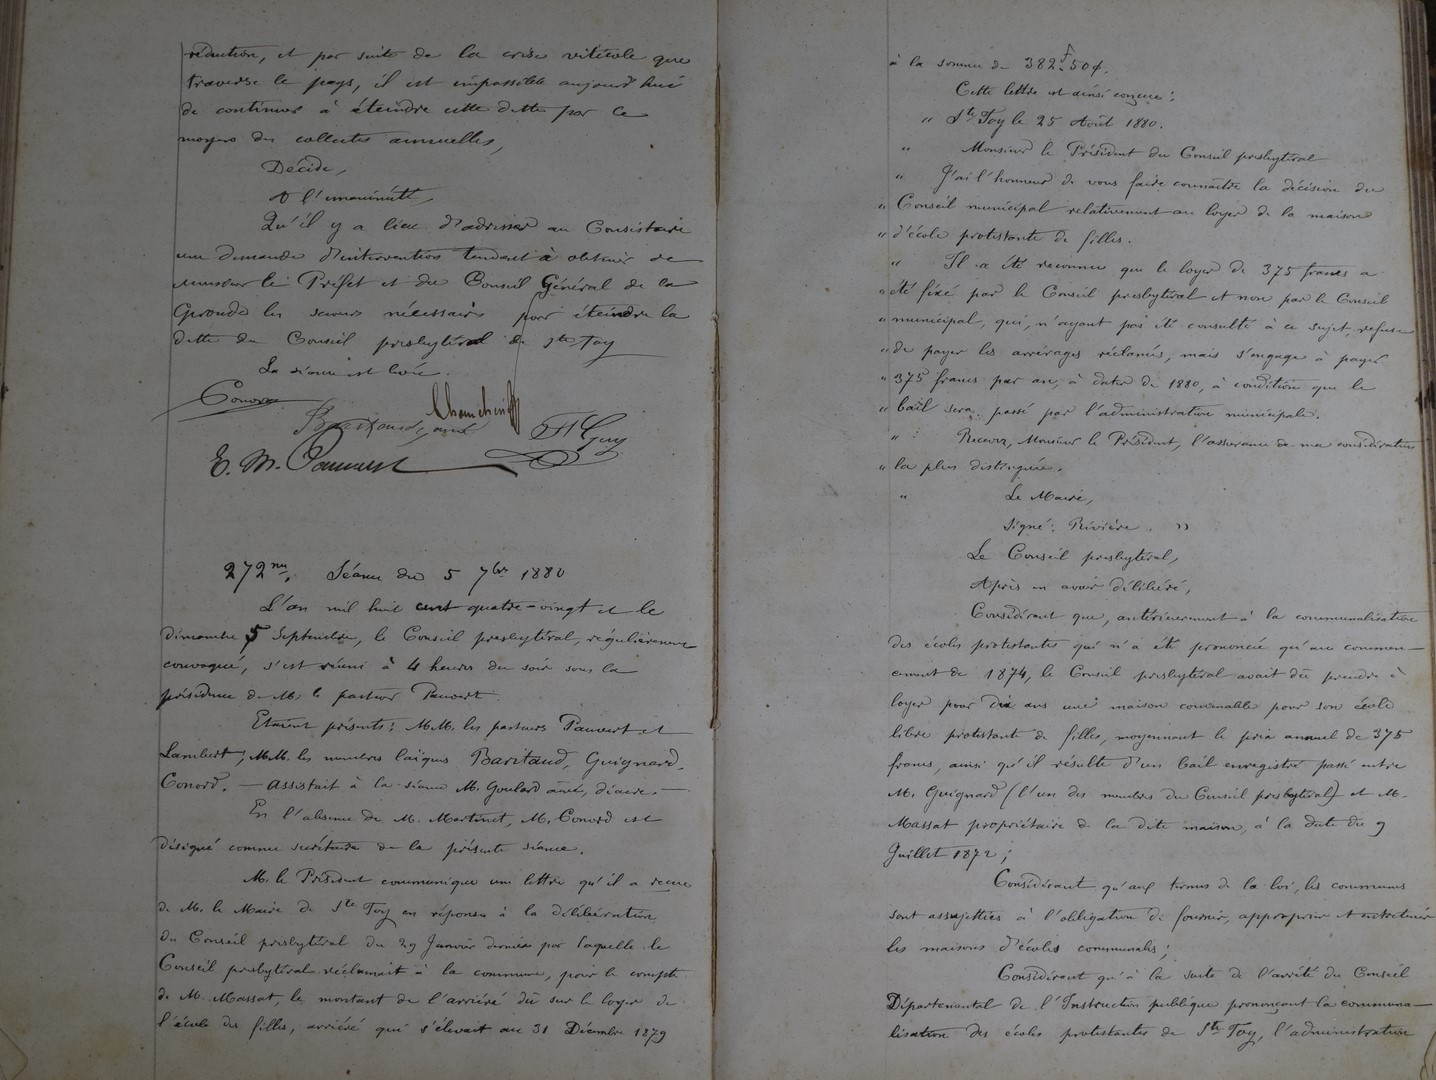 réduction, et par suite de la crise viticole que
traverse le pays, il est impossible aujourd'hui
de continuer à éteindre cette dette par le
moyen des collectes annuelles,
Décide,
A l'unanimité,
Qu'il y a lieu d'adresser au Consistoire
une demande d'intervention tendant à obtenir de
monsieur le Préfet et du Conseil Général de la
Gironde les secours nécessaires pour éteindre la
dette du Conseil presbytéral de Ste Foy
La séance est levée.
Conord
Baritaud
E. M. Pauvert
272me. Séance du 5 7bre 1880
L'an mil huit cent quatre-vingt et le
dimanche 5 Septembre, le Conseil presbytéral, régulièrement
convoqué, s'est réuni à 4 heures du soir sous la
présidence de M. le pasteur Pauvert.
Etaient présents: M.M. les pasteurs Pauvert et
Lambert; M.M. les membres laïques Baritaud, Guignard,
Conord. — Assistait à la séance M. Goulard aîné, diacre. —
En l'absence de M. Martinet, M. Conord est
désigné comme secrétaire de la présente séance.
M. le Président communique une lettre qu'il a reçue
de M. le Maire de Ste Foy en réponse à la délibération
du Conseil presbytéral du 29 Janvier dernier par laquelle le
Conseil presbytéral réclamait à la commune, pour le compte
de M. Massat, le montant de l'arriéré dû sur le loyer de
l'école des filles, arriéré qui s'élevait au 31 Décembre 1879
à la somme de 382f 50c.
Cette lettre est ainsi conçue:
" Ste Foy le 25 Août 1880.
" Monsieur le Président du Conseil presbytéral
" J'ai l'honneur de vous faire connaître la décision du
" Conseil municipal relativement au loyer de la maison
" d'école protestante de filles.
" Il a été reconnu que le loyer de 375 francs a
" été fixé par le Conseil presbytéral et non par le Conseil
" municipal, qui, n'ayant pas été consulté à ce sujet, refuse
" de payer les arrérages réclamés; mais s'engage à payer
" 375 francs par an, à dater de 1880, à condition que le
" bail sera passé par l'administration municipale.
" Recevez, Monsieur le Président, l'assurance de ma considération
" la plus distinguée.
" Le Maire,
Signé: Rivière. "
Le Conseil presbytéral,
Après en avoir délibéré,
Considérant que, antérieurement à la communalisation
des écoles protestantes qui n'a été prononcé qu'au commen-
cement de 1874, le Conseil presbytéral avait dû prendre à
loyer pour dix ans une maison convenable pour son école
libre protestante de filles, moyennant le prix annuel de 375
francs, ainsi qu'il résulte d'un bail enregistré passé entre
M. Guignard (l'un des membres du Conseil presbytéral) et M.
Massat propriétaire de la dite maison, à la date du 9
Juillet 1872;
Considérant qu'aux termes de la loi, les communes
sont assujetties à l'obligation de fournir, approprier et entretenir
les maisons d'écoles communales;
Considérant qu'à la suite de l'arrêté du Conseil
Départemental de l'Instruction publique prononçant la communa-
lisation des écoles protestantes de Ste Foy, l'administration